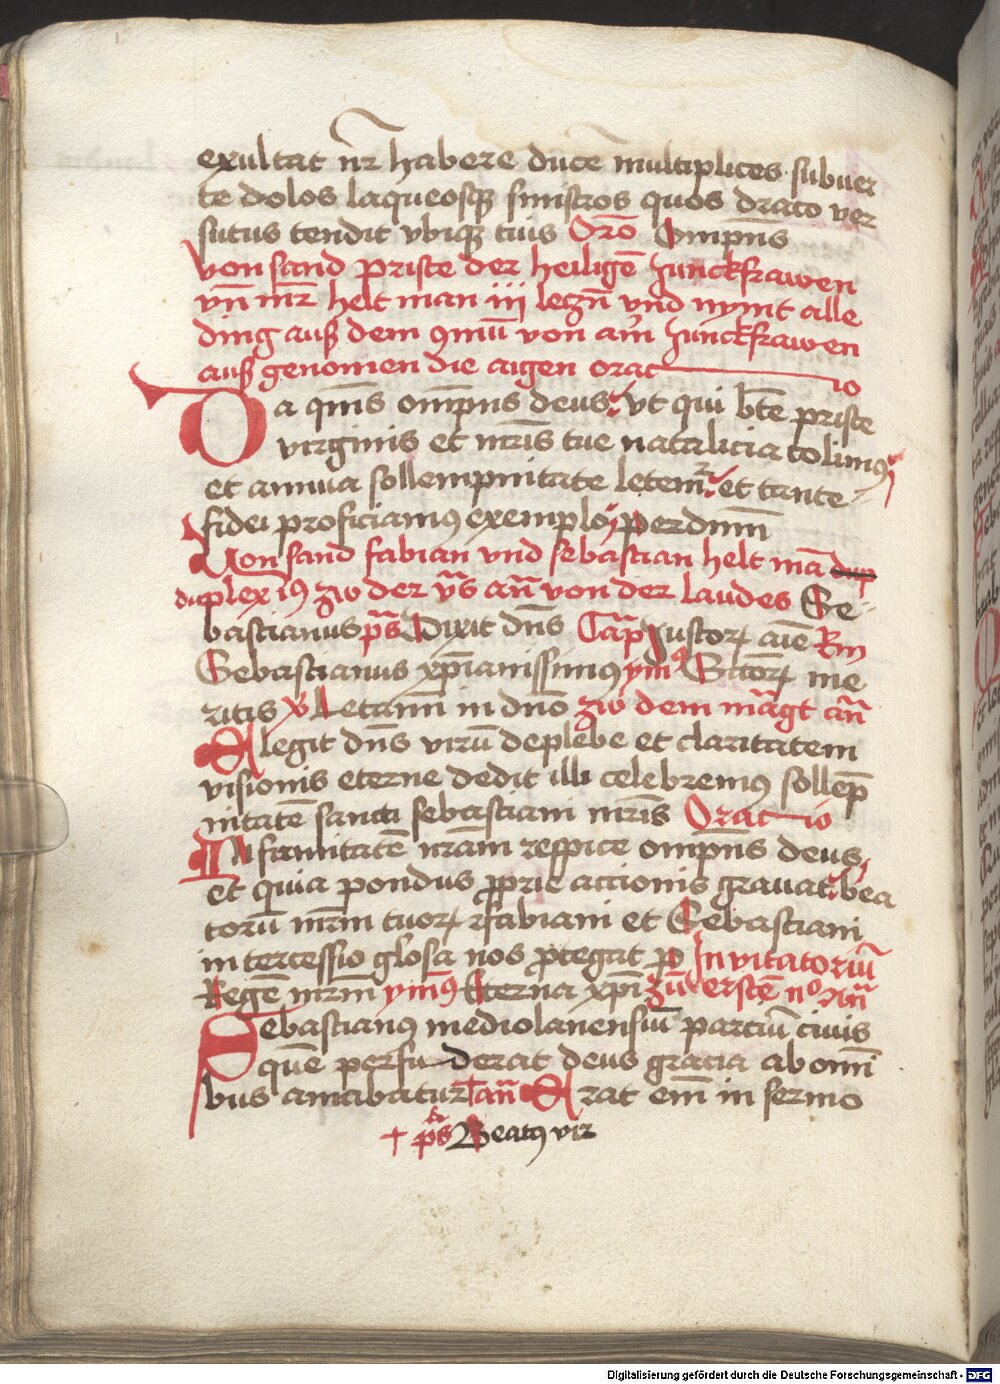 exultat nr̄ habere ducē multiplices subuer
te dolos laqueosqꝫ sinistros quos draco ver
sutus tendit vbiqꝫ tuis Orō Omp̄ns
von sand Priste der heiligē Junckfrawen
vn̄ mr̄ helt man iij leczn̄ vnd nymt alle
ding auß dem ꝯmū von ain̄ Junckfrawen
auß genomen die augen oratio
Da qm̄s omp̄ns deus vt qui bt̄e priste
virginis et mr̄is tue natalicia colimꝰ
et annua sollempnitate letemr̄ et tante
fidei proficiamꝰ exemplo per dnm̄
Von sand fabian vnd sebastian helt mā dup
duplex iꝰ zw der vs̄ an̄ von der laudes Se
bastianus ps̄ Dixit dn̄s Cap̄ Justoꝝ aīe Rm
Sebastianus xp̄ianissimꝰ ymꝰ Sc̄toꝝ me
ritis v̓ Letamī in dn̄o zw dem māgt an̄
Elegit dn̄s virū deplebe et claritatem
visionis eterne dedit illi celebremꝰ sollep̄
nitatē sancti sebastiani mr̄is Oratio
Infirmitatē nr̄am respice omp̄ns deus
et quia pondus ꝓprie accionis grauat bea
torū mr̄m tuoꝝ fabiani et Sebastiani
intercessio gl̄osa nos ꝓtegat ꝑ Invitatoriū
Regē mr̄m ymꝰ Eterna xp̄i zū erstē n° An̄
Sebastianꝰ mediolanensiū partiū ciuis
quē perfuderat deus gracia ab omī
bus amabatur † an̄ Erat em̄ in sermo
† ps̄ Beatꝰ vir
Digitalisierung gefördert durch die Deutsche Forschungsgemeinschaft - DFG